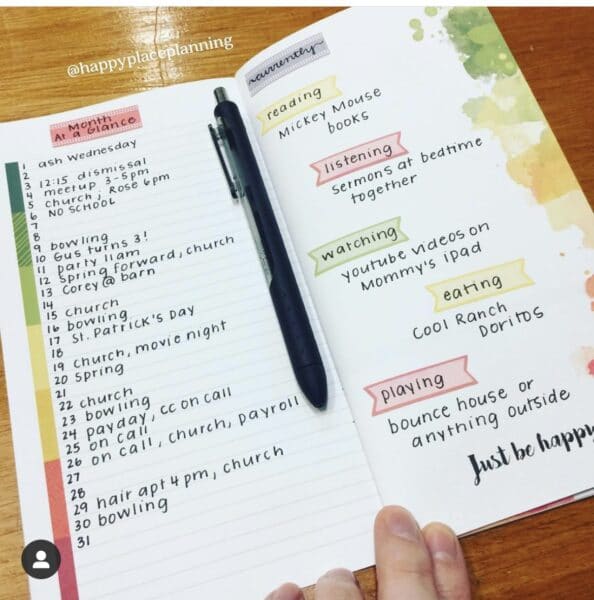 @happyplaceplanning
Month
At a Glance
1 ash wednesday
2
3 12:15 dismissal
4 meetup, 3-5pm
5 church, Rose 6pm
6 NO SCHOOL
7
8
9 bowling
10 Gus turns 3!
11 party 11am
12 spring forward, church
13 Corey @ barn
14
15 church
16 bowling
17 St. Patrick's Day
18
19 church, movie night
20 spring
21
22 church
23 bowling
24 payday, cc on call
25 on call
26 on call, church, payroll
27
28
29 hair apt 4pm, church
30 bowling
31
currently
reading
Mickey Mouse
books
listening
sermons at bedtime
together
watching
youtube videos on
Mommy's ipad
eating
Cool Ranch
Doritos
playing
bounce house or
anything outside
Just be happy